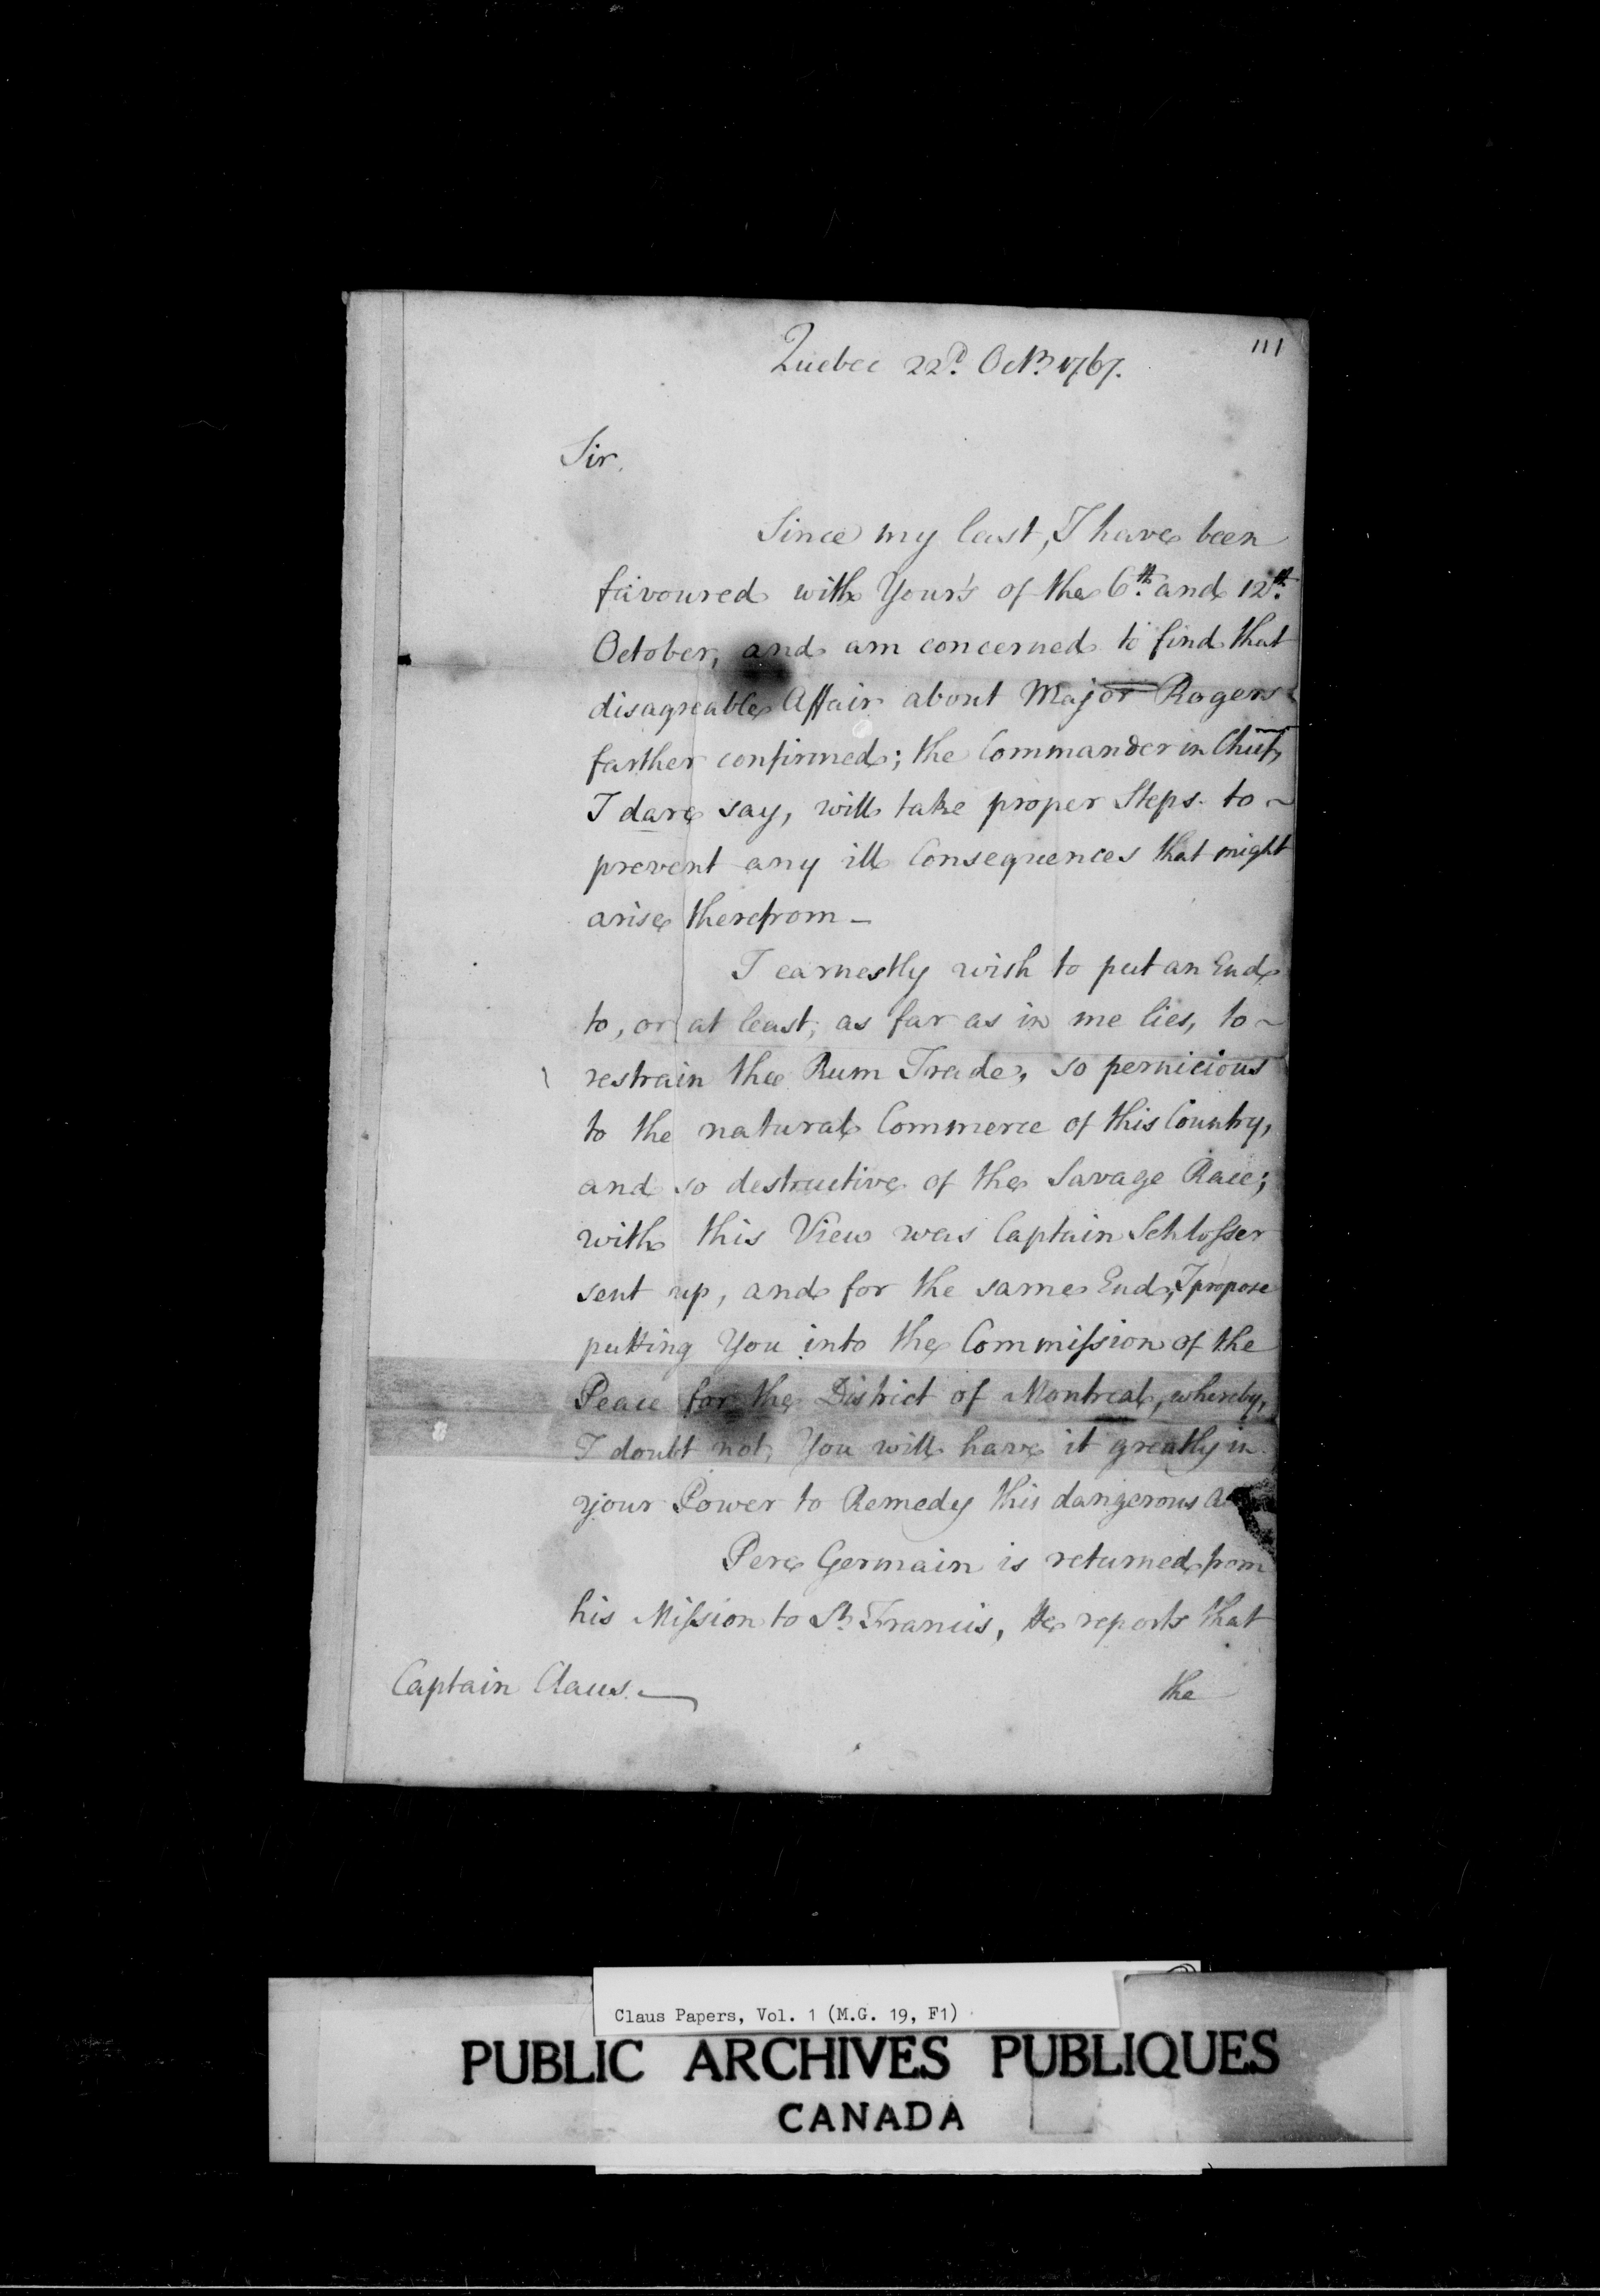 111
Quebec 22d. Octr. 1767.
Sir.
Since my last, I have been
favoured with Your's of the 6th. and 12th.
October, and am concerned to find that
disagreable Affair about Major Rogers
farther confirmed; the Commander in Chief,
I dare say, will take proper Steps to
prevent any ill Consequences that might
arise therefrom —
I earnestly wish to put an End
to, or at least, as far as in me lies, to
restrain the Rum Trade, so pernicious
to the natural Commerce of this Country,
and so destructive of the Savage Race;
with this View was Captain Schlosser
sent up, and for the same End, I propose
putting You into the Commission of the
Peace for the District of Montreal, whereby,
I doubt not, You will have it greatly in
your Power to Remedy this dangerous
Pere Germain is returned from
his Mission to St. Francis, He reports that
Captain Claus. —
the
Claus Papers, Vol. 1 (M.G. 19, F1)
PUBLIC ARCHIVES PUBLIQUES
CANADA